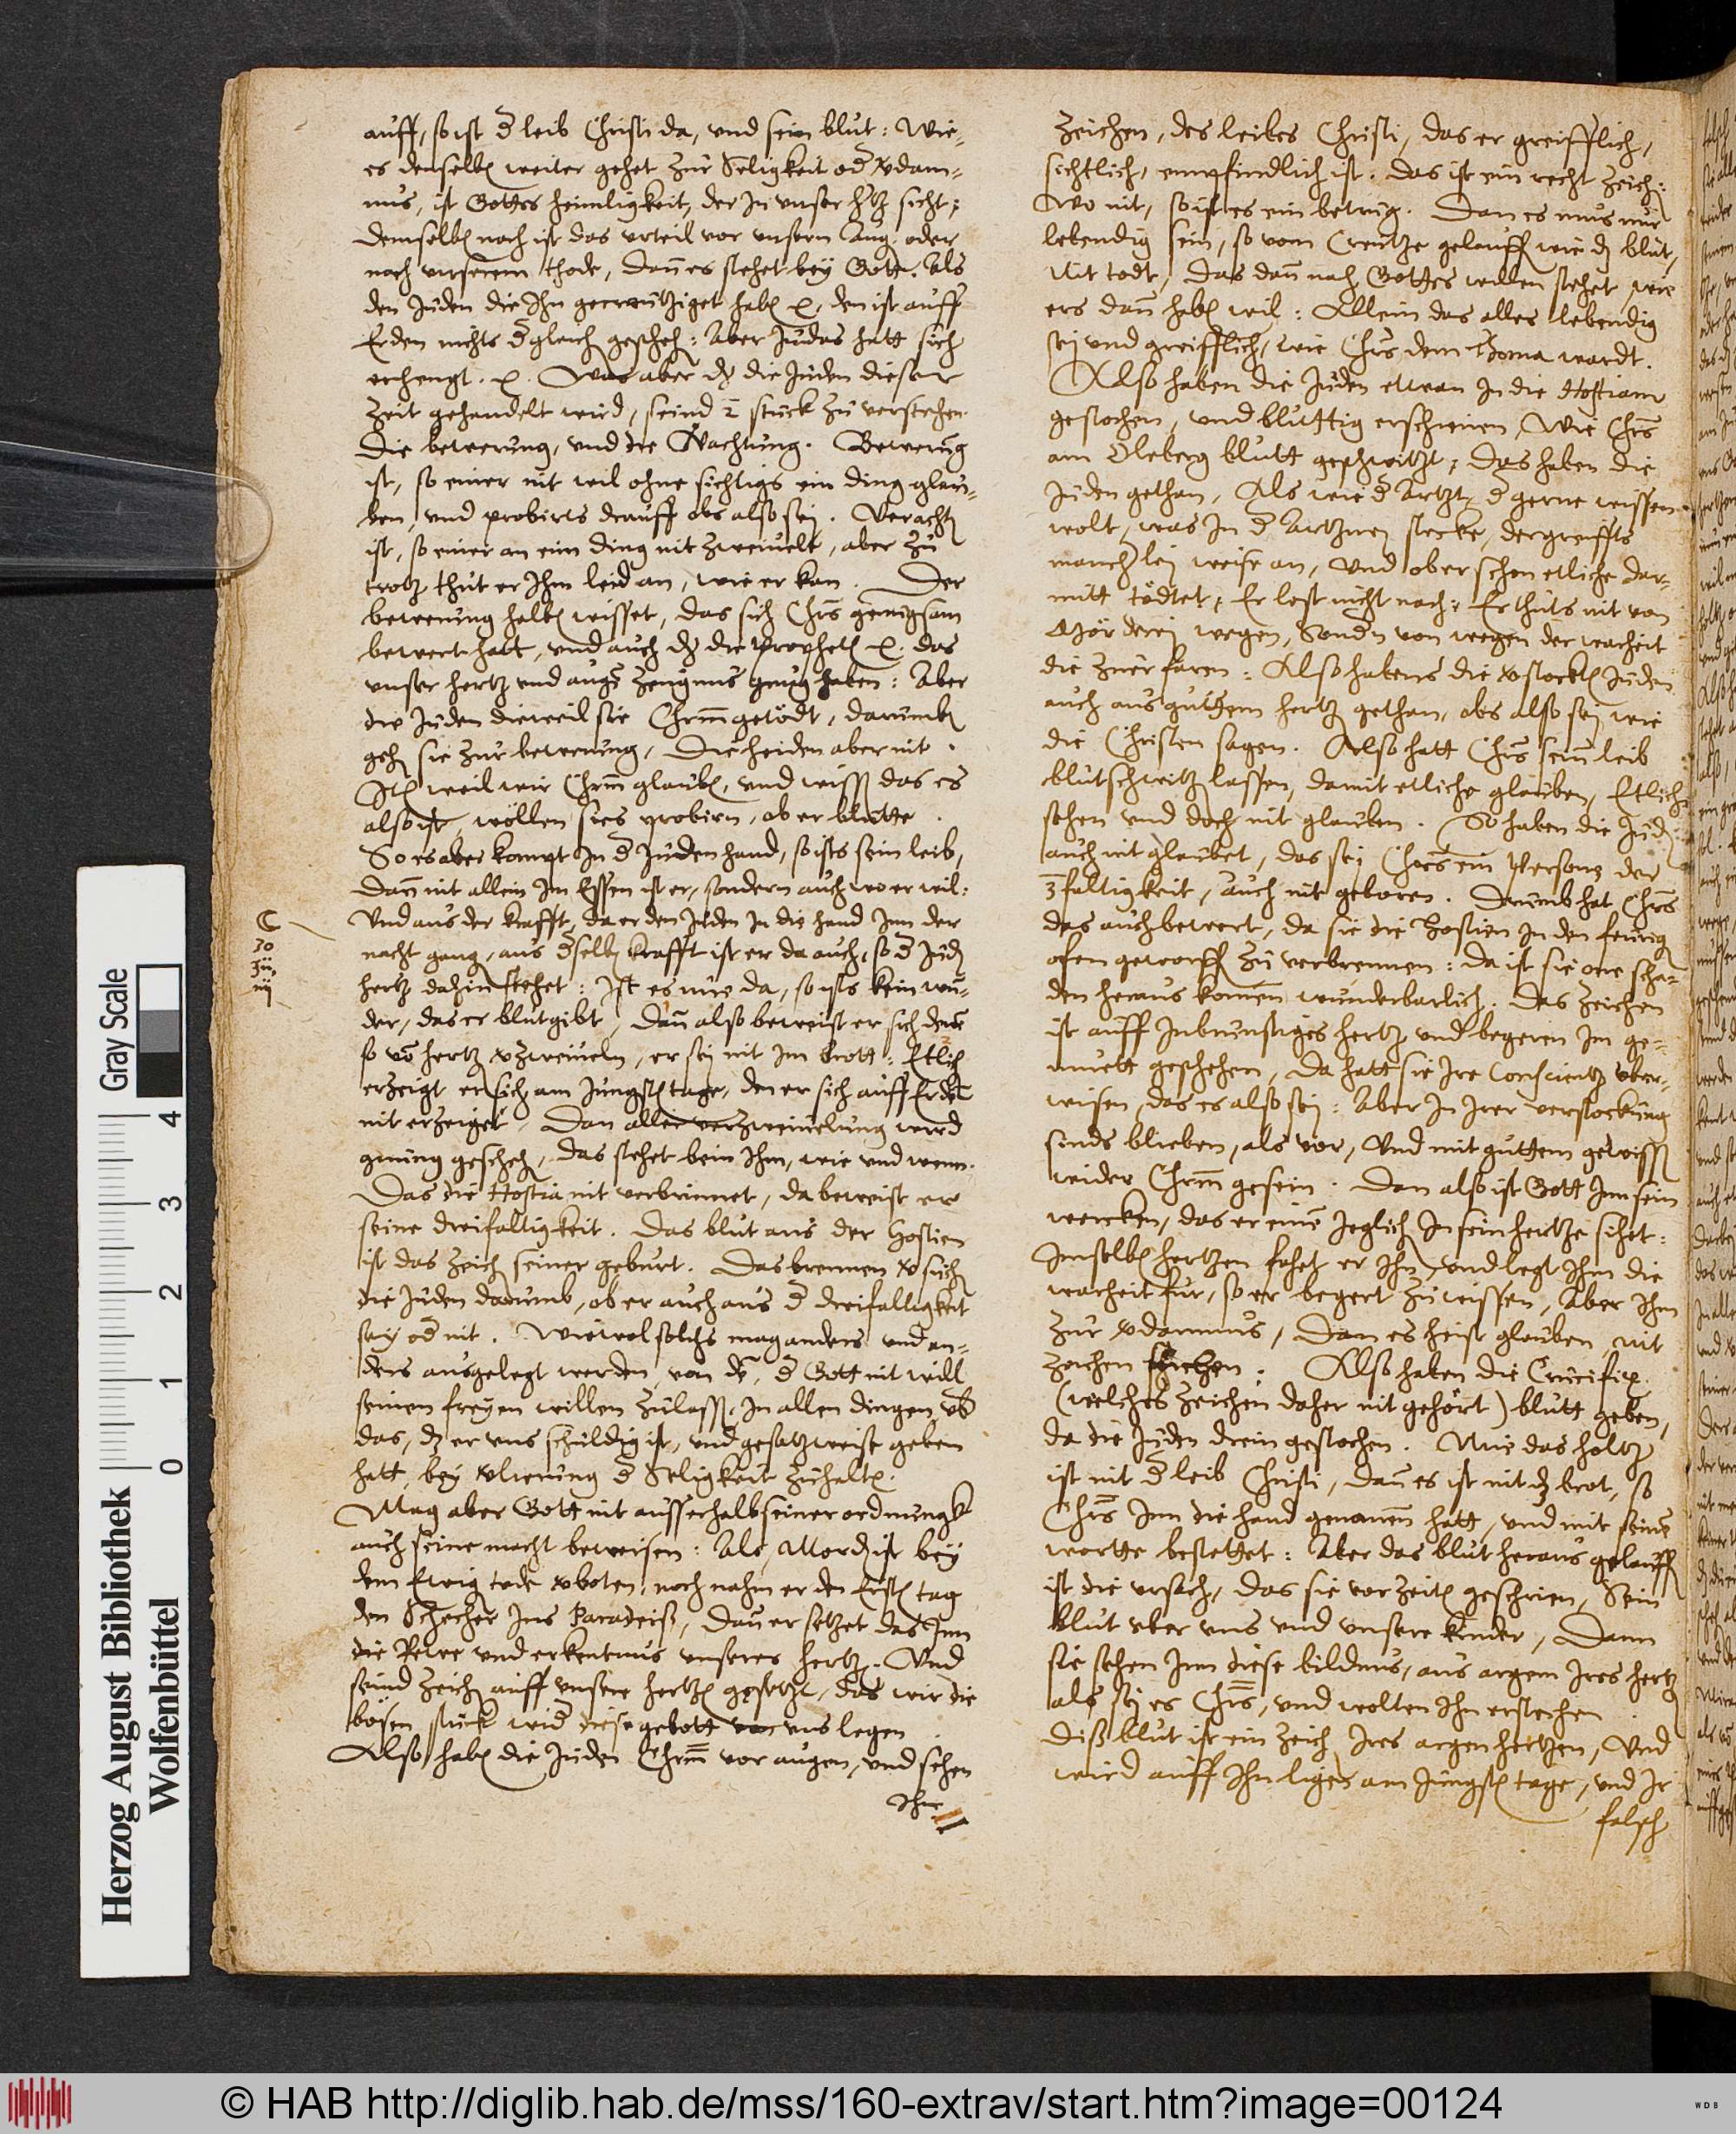 auff, so ist d leib Christi da, und sein blut: Wie
es denselb weiter gehet zur Seligkeit od vdam=
nus, ist Gottes heimligkeit, der in unser htz sicht;
Demselb nach ist das urteil vor unsern Aug. oder
nach unserem thode, dan es stehet bey Gott. Als
den Juden die Ihn gecreutziget hab, den ist auff
Erden nichts dgleich gescheh: Aber Judas hatt sich
erhengt. Was aber die Juden dieser
zeit gehandelt wird, seind 2 stuck zu verstehen.
Die bewerung, und die Vachtung. Bewerung
ist, so einer nit wil ohne sichtigs ein ding glau=
ben, und probirts drauff obs also sej. Veracht
ist, so einer an eim ding nit zweivelt, aber zu
trotz thut er Ihm leid an, wie er kan. Der
bewerung halb wisset, das sich Chrs genugsam
bewert hatt, und auch die Prophet. das
unser hertz und auge zeugnus gnug haben: Aber
die Juden dieweil sie Chrm getödt, darumb
geh sie zur bewerung, Die heiden aber nit.
It weil wir Chrm glaub, und wiss das es
also ist, wöllen sies probirn, ob er blutte.
So es aber kompt in d Juden hand, so ists sein leib,
Dan nit allein im Essen ist er, sondern auch wo er wil:
Und aus der krafft, da er den Juden in die hand Inn der
nacht gang, aus dselb krafft ist er da auch, so d Jud
hertz dahin stehet: Ist es nur da, so ists kein wun=
der, das er blut gibt, Dan also beweist er sich denē
so vō hertz vzweiveln, er sej nit im brott: Etlich
erzeigt er sich am Jungst tage, den er sich auff Erdē
nit erzeiget, Dan aller verzweiuelung wird
gnung gescheh, das stehet bein Ihm, wie und wenn.
Das die Hostia nit verbrinnet, da beweist er
seine dreifaltigkeit. Das blut aus der Hostien
ist das zeich seiner geburt. Das brennen vsuch
die Juden darumb, ob er auch aus d dreifalligkeit
sey od nit. Wiewol solchs mag anders und an=
ders ausgelegt werden, von dē, d Gott nit will
seinen freyen willen zulass, In allen dingen, vb
das, dz er uns schuldig ist, und gesatzweise geben
hatt, bey vlierung d Seligkeit zuhalt.
Mag aber Gott nit ausserhalb seiner ordnungk
auch seine macht beweisen: Als, Mord ist bey
dem Ewig tode vboten, noch nahm er den Erst tag
den Schecher Ins Paradeiss, Dan er setzet das Inn
die Rewe und erkentnus unseres hertz. Und
seind zeich auff unsere hertz gesetzt, das wir die
bösen stuck wid diese gebott von uns legen.
Also hab die Juden Chrm vor augen, und sehen
Ihn
C
zo
zu
iiij
zeichen, des leibes Christi, das er greifflich,
sichtlich, empfindlich ist. Das ist ein recht zeich:
Wo nit, so ist es ein betrug. Dan es mus nur
lebendig sein, so vom Creutze gelauff wie dz blut,
Nit todt, Das dan nach Gottes willen stehet, wie
ers dan hab wil: Allein das alles lebendig
sej und greifflich, wie Chrs dem Thoma wardt.
Also haben die Juden etwan in die Hostiam
gestochen, und bluttig erschienen, Wie Chrs
am Oleberg blutt geschwitzt; Das haben die
Juden gethan, Als wie d Artzt, d gerne wissen
wolt, was in d Artzney stecke, der greiffts
manchlej weise an, und ob er schon etliche dar=
mitt tödtet, Er lest nicht nach; Er thuts nit von
Mörderej wegen, Sondn von wegen der warheit
die zuerfaren: Also habens die vstockt Juden
auch aus guttem hertz gethan, obs also sej wie
die Christen sagen. Also hatt Chrs sein leib
blutschwitz lassen, damit etliche glauben, Etliche
sehen und doch nit glauben. So haben die Jud
auch nit glaubet, das sej Chrs ein Person der
3faltigkeit, auch nit geboren. Drumb hat Chrs
das auch bewert, da sie die Hostien in den feurig
ofen geworff zu verbrennen: da ist sie one scha=
den heraus komen wunderbarlich. Das zeichen
ist auff inbrunstiges hertz und begeren im ge=
muett geschehen, Da hatt sie Ire Conscientz vber=
wisen, das es also sej: Aber in Irer verstockung
sinds blieben, als vor, Und mit guttem gewiss
wider Chrm gesein. Dan also ist Gott Inn sein
wercken, das er einē jeglich in sein hertze sihet:
Imselb hertzen fahet er Ihn, und legt Ihm die
warheit fur, so er begert zu wissen, Aber Ihm
zur vdamnus, Dan es heist glauben, nit
zeichen suchen. Also haben die Crucifix.
(welches zeichen daher nit gehört) blutt geben,
da die Juden drein gestochen. Nu das holtz
ist nit d leib Christi, dan es ist nit dz brot, so
Chrs Inn die hand genomen hatt, und mit seinē
wortte bestettet: Aber das blut heraus gelauff
ist die ursach, das sie vorzeit geschrien, Sein
blut vber uns und unsere kinder, Dann
sie sehen Inn diese bildnus, aus argem Ires hertz
als sej es Chrs, und wolten Ihn erstechen.
Diss blut ist ein zeich Ires argen hertzen, Und
wird auff Ihn ligen am Jungst tage, und Ir
falsch
Gray Scale
0 1 2 3 4
Herzog August Bibliothek
Wolfenbüttel
© HAB http://diglib.hab.de/mss/160-extrav/start.htm?image=00124
WDB